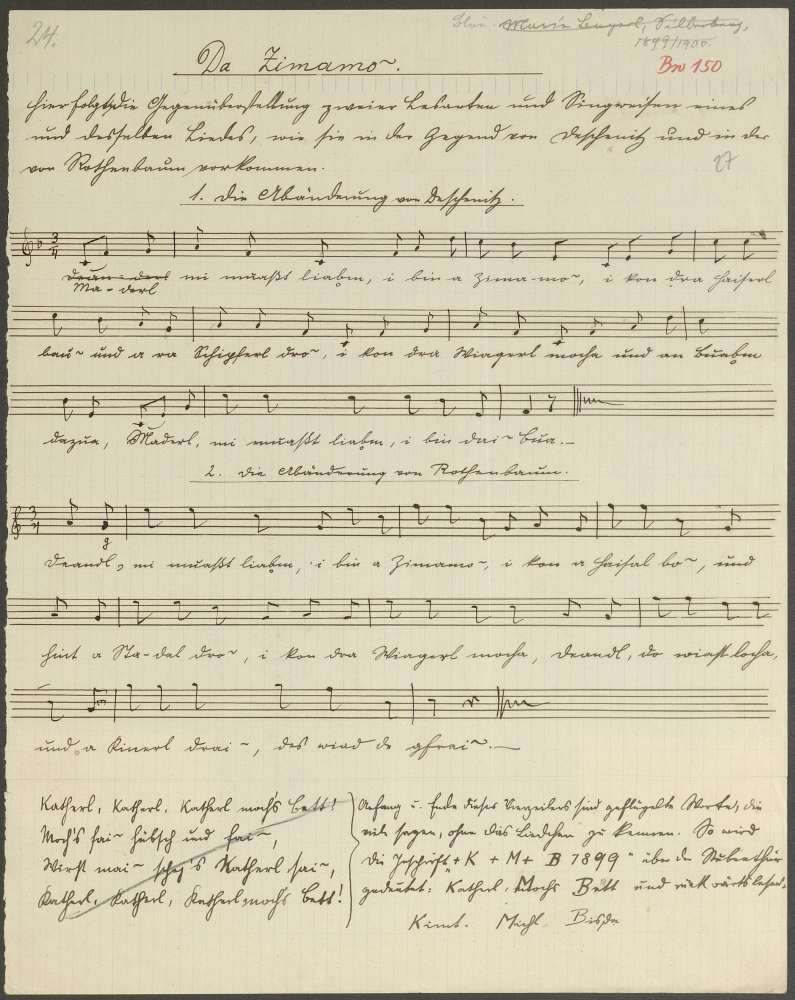 24.
Marie Bayerl, Silberberg,
1899/1900.
Bw 150
Da Zimamo~.
Hier folgt die Gegenüberstellung zweier Lesarten und Singweisen eines
und desselben Liedes, wie sie in der Gegend von Deschenitz und in der
von Rothenbaum vorkommen.
27
1. Die Abänderung von Deschenitz.
mi muaßt liabm, i bin a Zima-mo~, i kon dra Haiserl
Ma-derl
bau~ und a ra Schipferl dro~, i kon dra Wiagerl mocha und an Buabm
dazua, Maderl, mi muaßt liabm, i bin dai~ Bua.—
2. Die Abänderung von Rothenbaum.
g
Deandl, mi muaßt liabm, i bin a Zimamo~, i kon a Haisal bo~, und
hint a Sta-dal dro~, i kon dra Wiagerl mocha, Deandl, do wiast locha,
und a Kinerl drai~, des wiad de gfrei~.—
Katherl, Katherl, Katherl moch's Bett!
Moch's fai~ hübsch und fai~,
Wirst mai~ schej's Katherl sai~,
Katherl, Katherl, Katherl moch's Bett!
Anfang u. Ende dieses Vierzeilers sind geflügelte Worte, die
viele sagen, ohne das Liedchen zu kennen. So wird
die Inschrift "+K+M+B 1899" über der Stubenthür
gedeutet: Katherl Mochs Bett und rückwärts lesend,
Kimt. Michl Bista